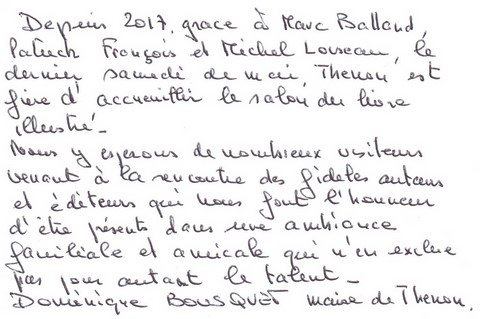 Depuis 2017, grace à Marc Balland,
Patrick François et Michel Loiseau, le
dernier samedi de mai, Thenon est
fière d'accueillir le salon du livre
illustré.
Nous y esperons de nombreux visiteurs
venant à la rencontre des fidèles auteurs
et éditeurs qui nous font l'honneur
d'être présents dans une ambiance
familiale et amicale qui n'en exclue
pas pour autant le talent.
Dominique BOUSQUET maire de Thenon.